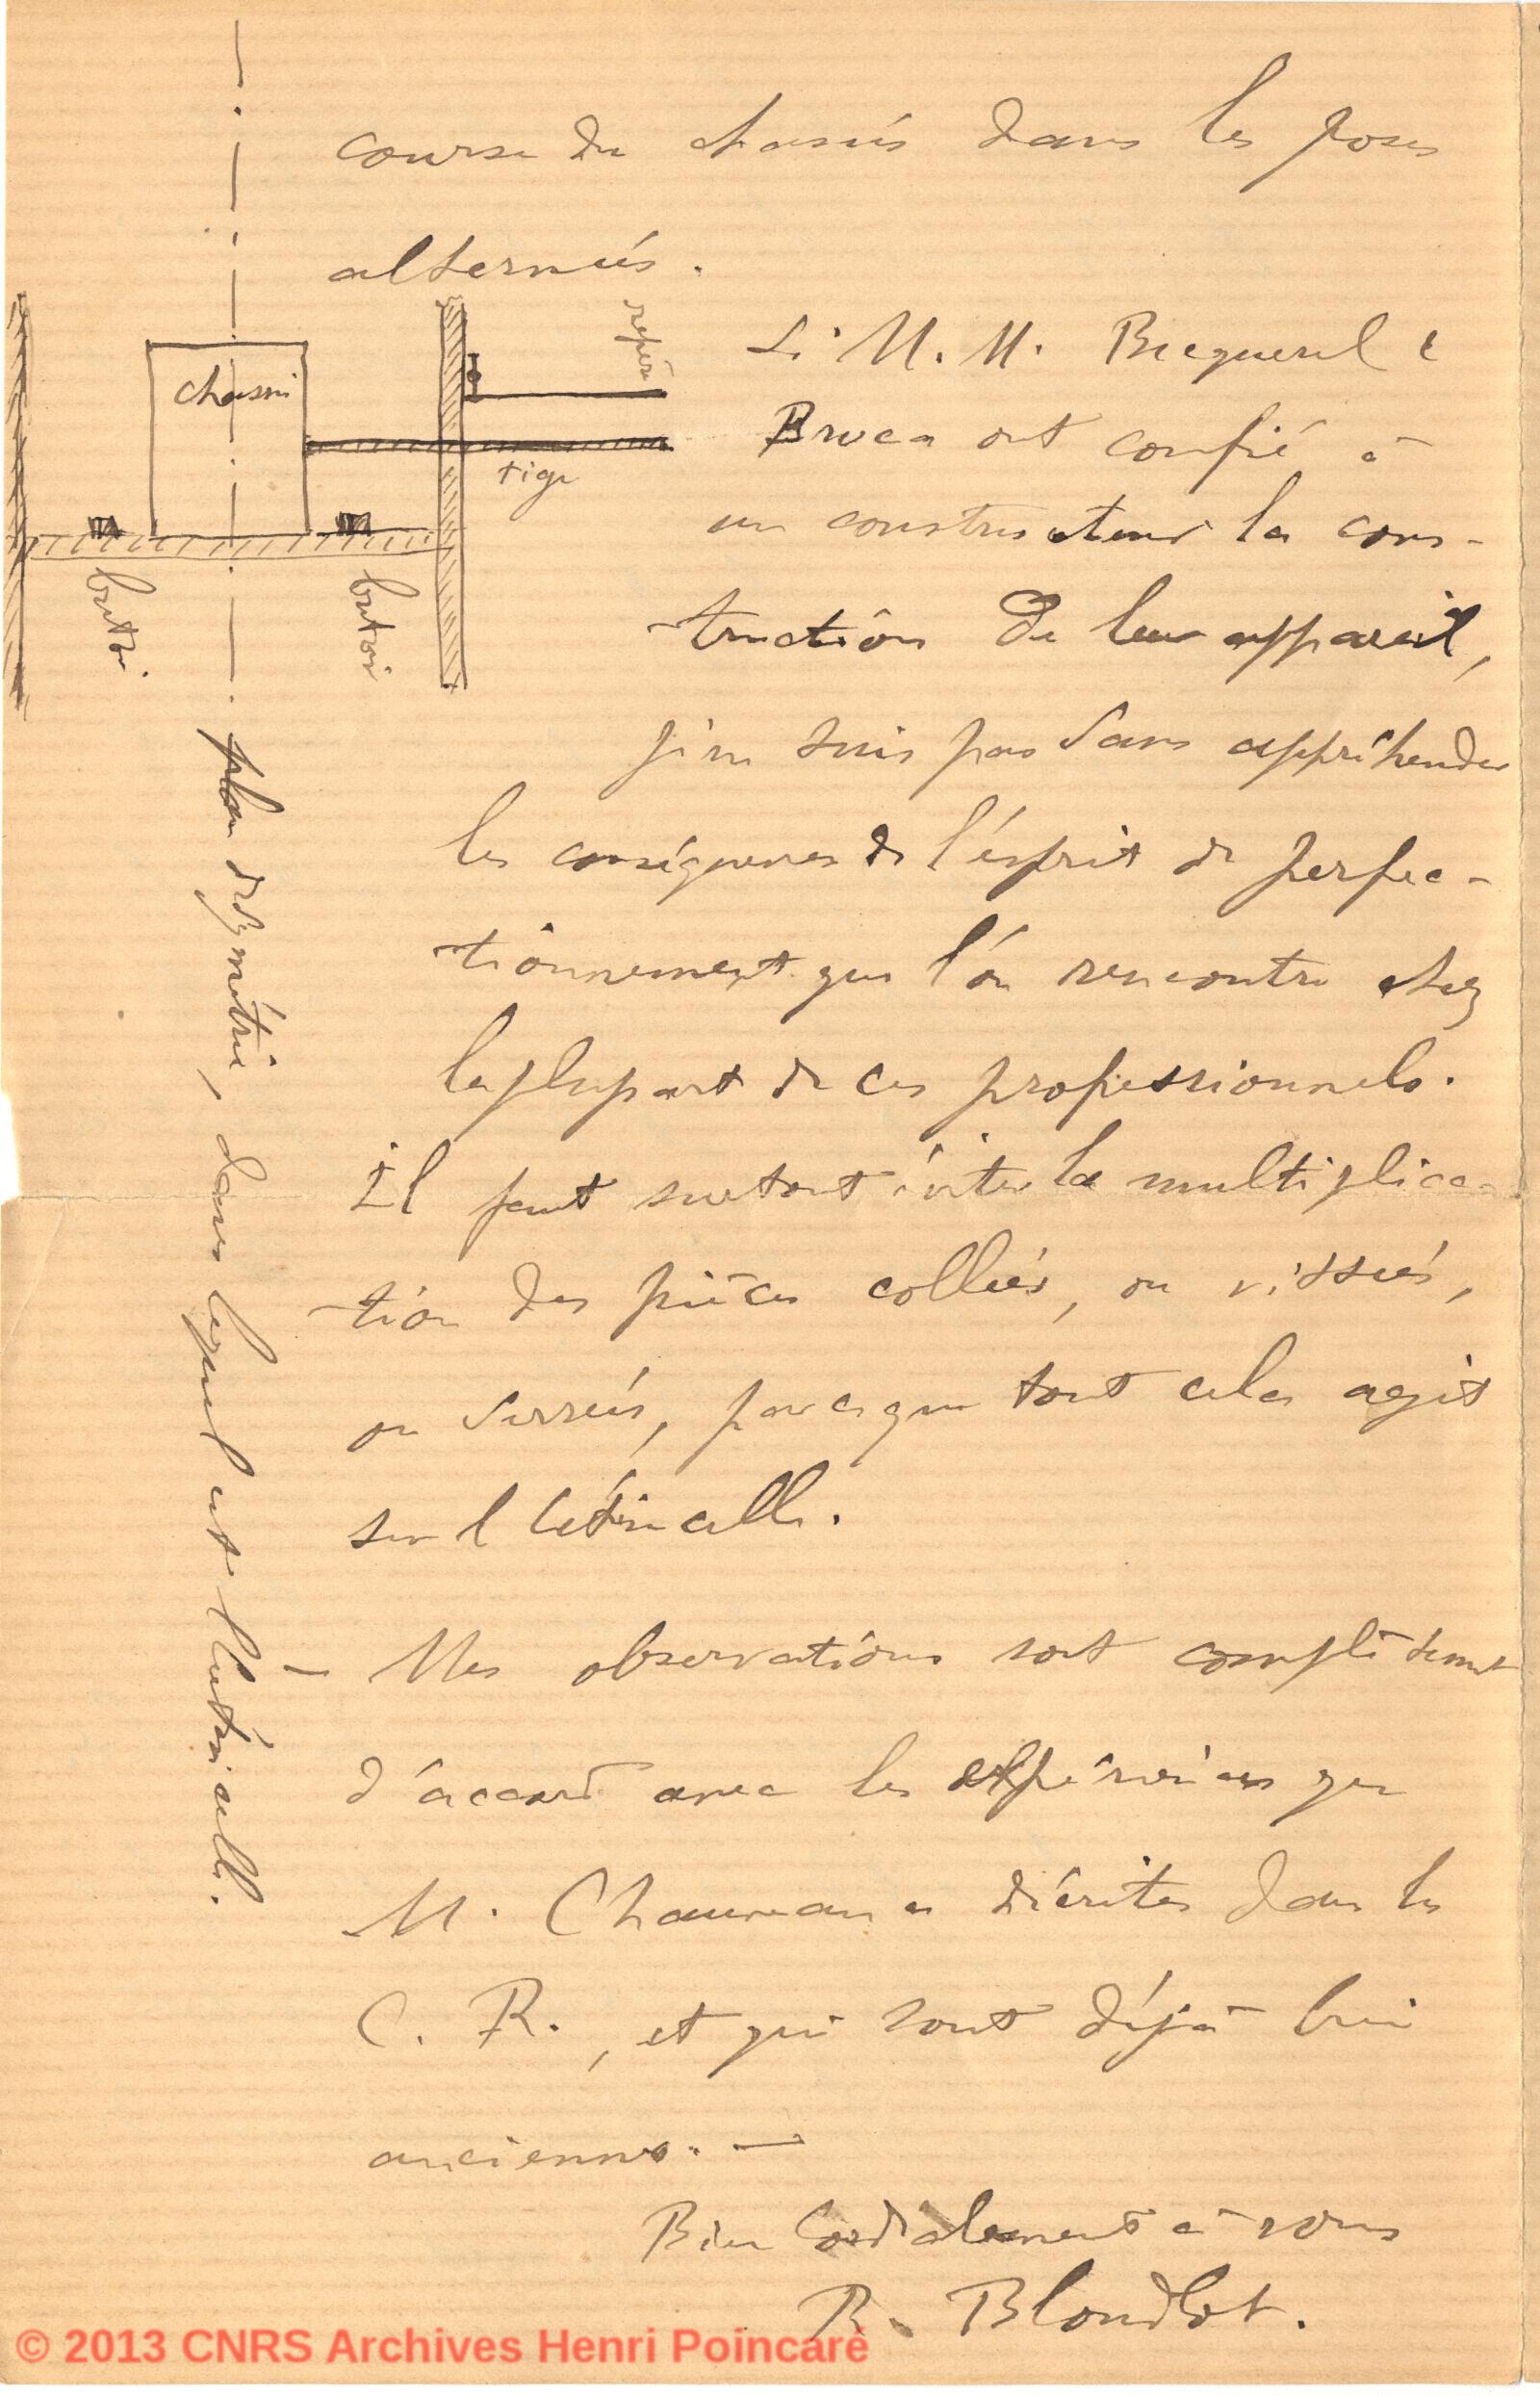 course du chassis dans les poses
alternées.
chassis
repère
tige
butoir
butoir
plan de symétrie, dans lequel est l'étincelle.
Si M. M. Becquerel &
Broca ont confié à
un constructeur la cons-
truction de leur appareil,
je ne suis pas sans appréhender
les conséquences de l'esprit de perfec-
tionnement que l'on rencontre chez
la plupart de ces professionnels.
Il faut surtout éviter la multiplica-
tion des pièces collées, ou vissées,
ou serrées, parce que tout cela agit
sur l'étincelle.
— Mes observations sont complètement
d'accord avec les expériences que
M. Chauveau a décrites dans les
C. R., et qui sont déjà bien
anciennes. —
Bien Cordialement à vous
R. Blondlot.
© 2013 CNRS Archives Henri Poincaré